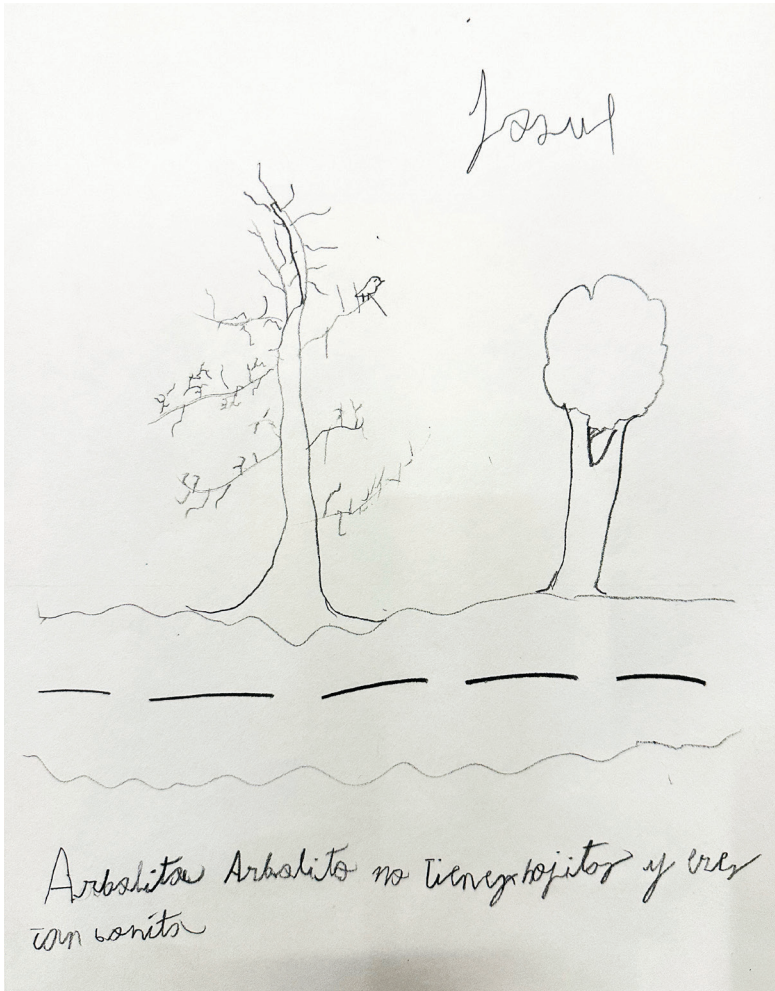 Josue
Arbolito Arbolito no tienes hojitas y eres
tan bonito